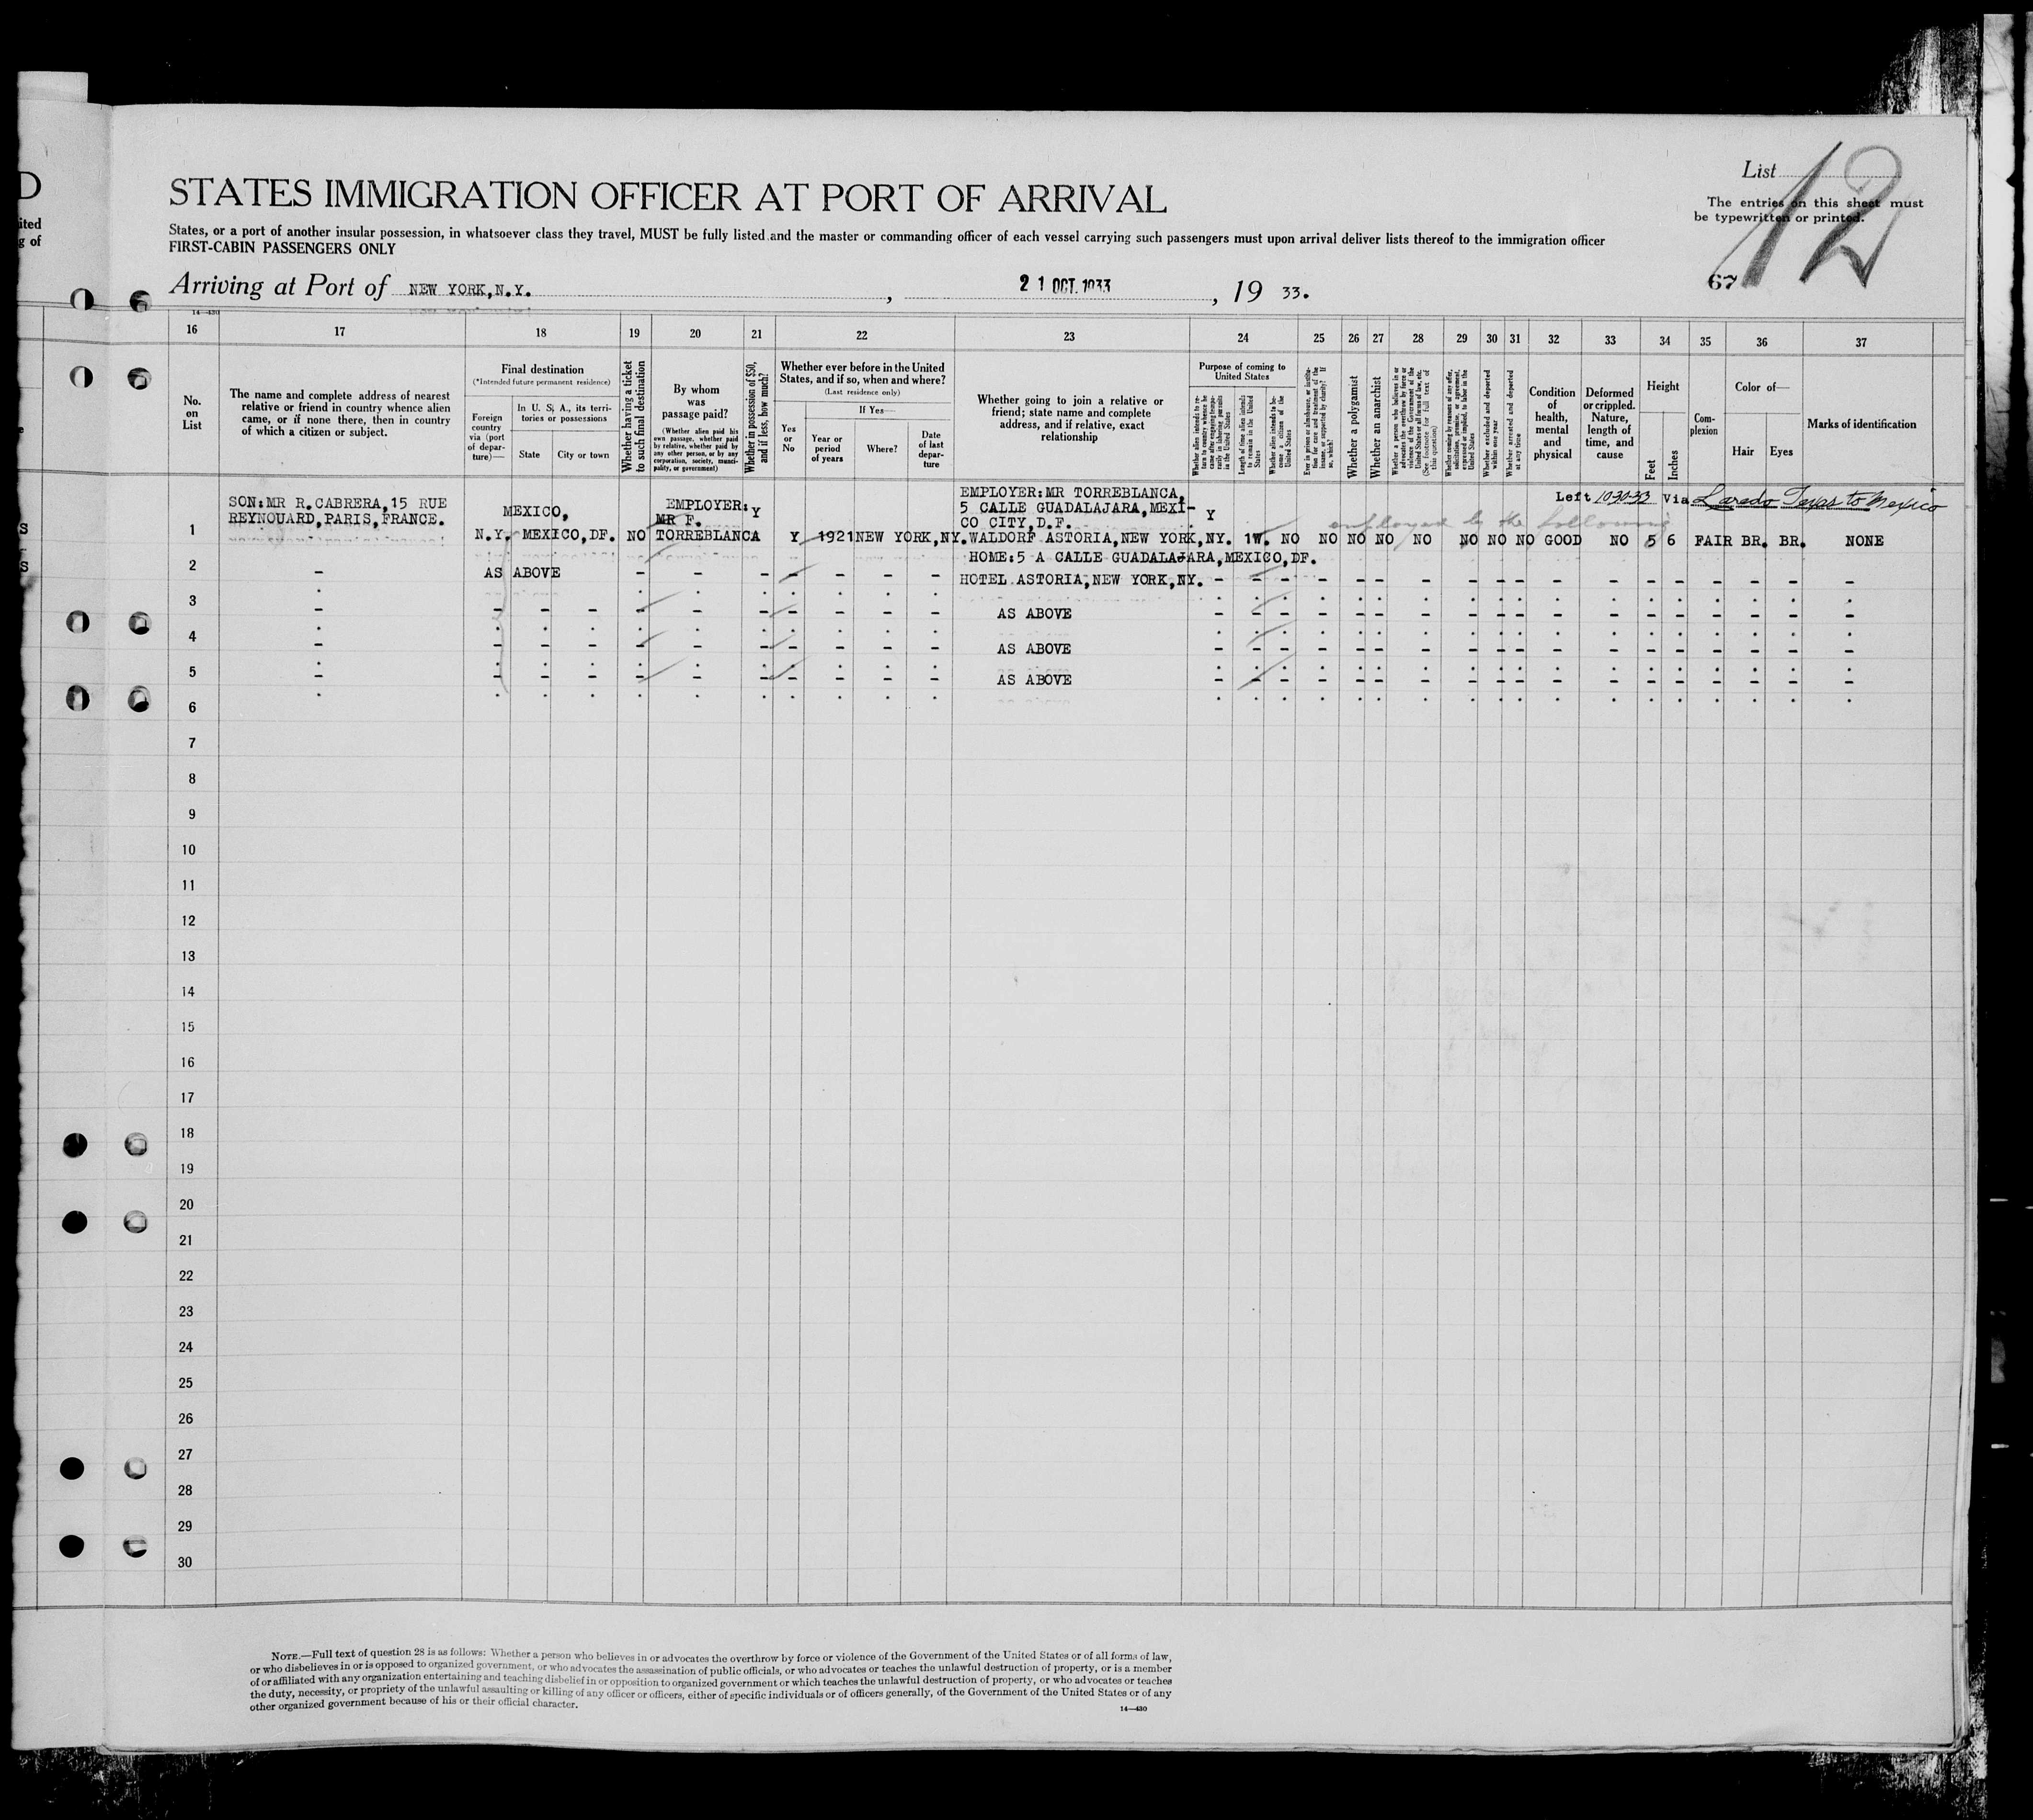 D
ited
g of
List 12
STATES IMMIGRATION OFFICER AT PORT OF ARRIVAL
The entries on this sheet must
be typewritten or printed.
States, or a port of another insular possession, in whatsoever class they travel, MUST be fully listed and the master or commanding officer of each vessel carrying such passengers must upon arrival deliver lists thereof to the immigration officer
FIRST-CABIN PASSENGERS ONLY
67
Arriving at Port of NEW YORK,N.Y. , 21 OCT. 1933 , 19 33.
14—430
16 17 18 19 20 21 22 23 24 25 26 27 28 29 30 31 32 33 34 35 36 37
No.
on
List
The name and complete address of nearest
relative or friend in country whence alien
came, or if none there, then in country
of which a citizen or subject.
Final destination
(*Intended future permanent residence)
Foreign
country
via (port
of depar-
ture)—
In U. S. A., its terri-
tories or possessions
State City or town
Whether having a ticket
to such final destination
By whom
was
passage paid?
(Whether alien paid his
own passage, whether paid
by relative, whether paid by
any other person, or by any
corporation, society, munici-
pality, or government)
Whether in possession of $50,
and if less, how much?
Whether ever before in the United
States, and if so, when and where?
(Last residence only)
Yes
or
No
If Yes—
Year or
period
of years
Where?
Date
of last
depar-
ture
Whether going to join a relative or
friend; state name and complete
address, and if relative, exact
relationship
Purpose of coming to
United States
Length of time alien intends
to remain in the United
States
Whether alien intends to be-
come a citizen of the
United States
Whether a polygamist
Whether an anarchist
Whether excluded and deported
within one year
Whether arrested and deported
at any time
Condition
of
health,
mental
and
physical
Deformed
or crippled.
Nature,
length of
time, and
cause
Height
Feet
Inches
Com-
plexion
Color of—
Hair Eyes
Marks of identification
Left 10-30-33 Via Laredo Texas to Mexico
employed by the following
1 SON:MR R.CABRERA,15 RUE
REYNOUARD,PARIS,FRANCE.
MEXICO,
N.Y. MEXICO,DF. NO
EMPLOYER:
MR F.
TORREBLANCA
Y
Y 1921 NEW YORK,NY.
EMPLOYER:MR TORREBLANCA,
5 CALLE GUADALAJARA,MEXI-
CO CITY,D.F.
WALDORF ASTORIA,NEW YORK,NY.
Y
1W. NO NO NO NO NO NO NO NO GOOD NO 5 6 FAIR BR. BR. NONE
HOME:5 A CALLE GUADALAJARA,MEXICO,DF.
2 - AS ABOVE - - - - - - - HOTEL ASTORIA,NEW YORK,NY. - - - - - - - - - - - - - - - - - -
3 - - - - - - - - - - - AS ABOVE - - - - - - - - - - - - - - - - - -
4 - - - - - - - - - - - AS ABOVE - - - - - - - - - - - - - - - - - -
5 - - - - - - - - - - - AS ABOVE - - - - - - - - - - - - - - - - - -
6
7
8
9
10
11
12
13
14
15
16
17
18
19
20
21
22
23
24
25
26
27
28
29
30
NOTE.—Full text of question 28 is as follows: Whether a person who believes in or advocates the overthrow by force or violence of the Government of the United States or of all forms of law,
or who disbelieves in or is opposed to organized government, or who advocates the assassination of public officials, or who advocates or teaches the unlawful destruction of property, or is a member
of or affiliated with any organization entertaining and teaching disbelief in or opposition to organized government or which teaches the unlawful destruction of property, or who advocates or teaches
the duty, necessity, or propriety of the unlawful assaulting or killing of any officer or officers, either of specific individuals or of officers generally, of the Government of the United States or of any
other organized government because of his or their official character.
14—430